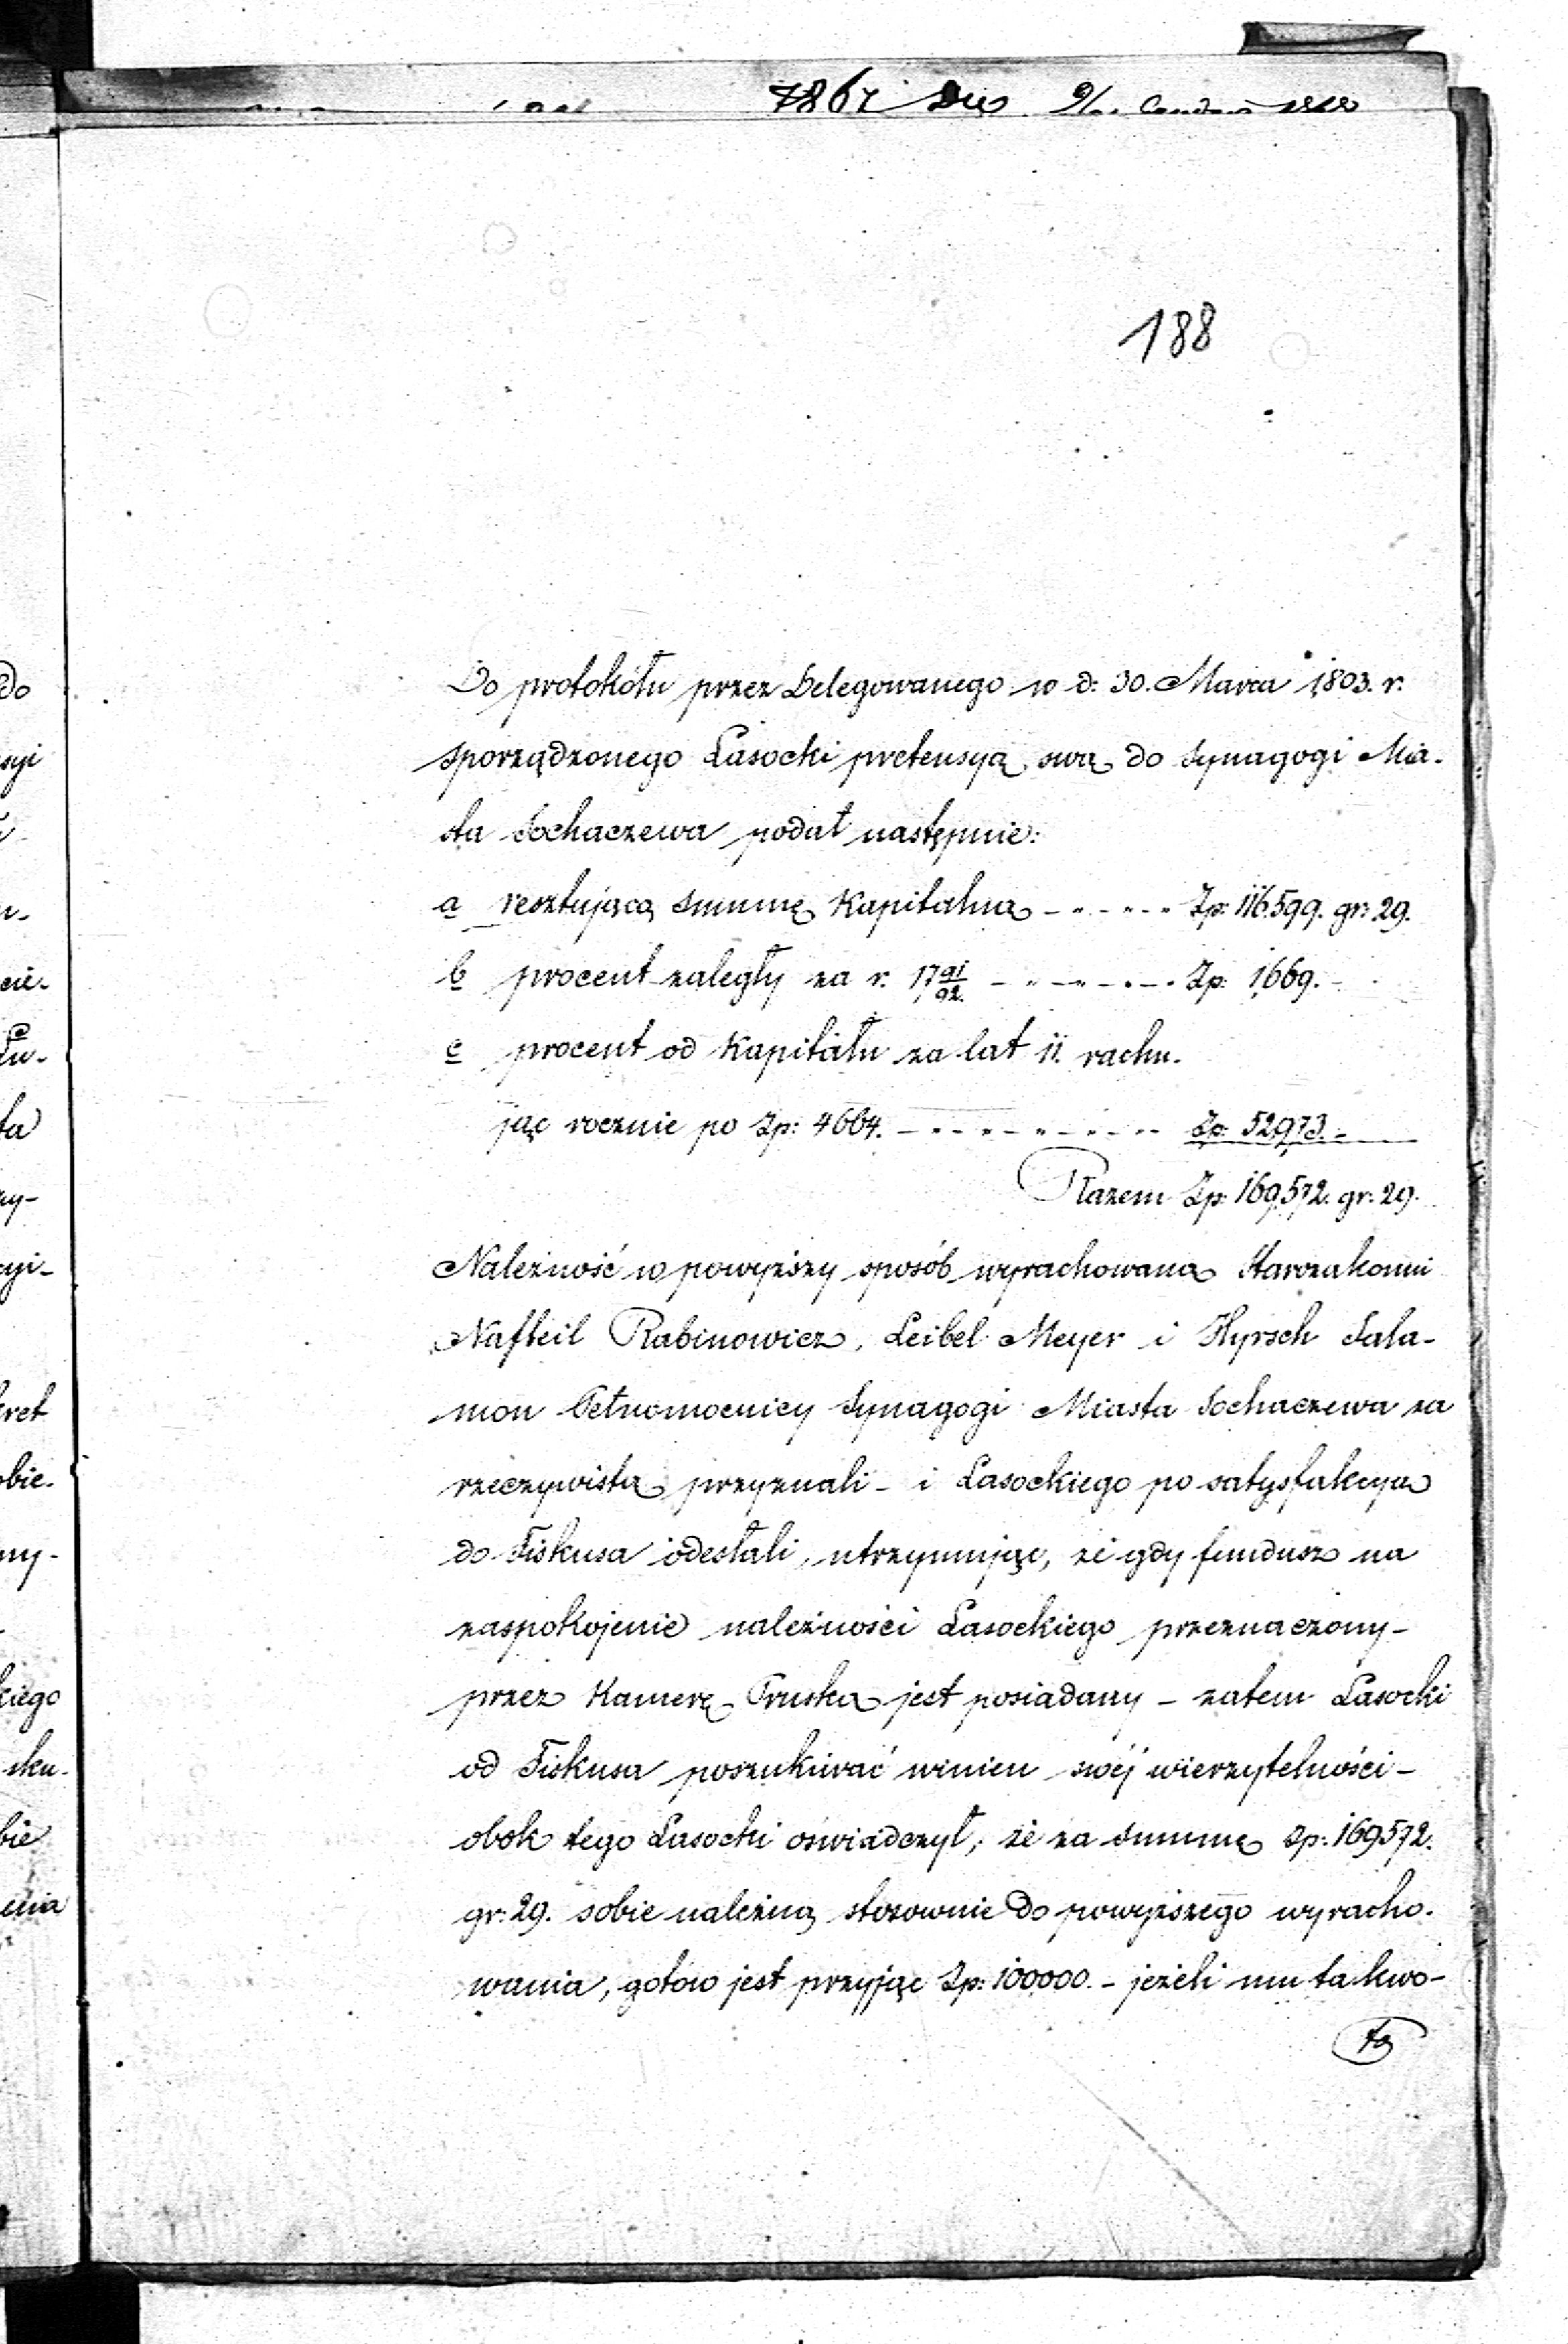 188
Do protokółu przez Delegowanego w d: 30. Marca 1803. r.
sporządzonego Lasocki pretensyą swą do Synagogi Mia-
sta Sochaczewa podał następnie:
a resztującą summę Kapitalną - " - " - " Zp: 116,599. gr: 29.
b procent zaległy za r. 17 91/92. - " - " - " - Zp: 1,669. -
c procent od Kapitału za lat 11. rachu-
jąc rocznie po Zp: 4664. - " - " - " - " - Zp: 52,973. -
Razem Zp: 169,572. gr: 29.
Należność w powyższy sposób wyrachowaną Starozakonni
Nafteil Rabinowicz, Leibel Meyer i Hyrsch Sala-
mon Pełnomocnicy Synagogi Miasta Sochaczewa za
rzeczywistą przyznali - i Lasockiego po satysfakcyą
do Fiskusa odesłali, utrzymując, że gdy fundusz na
zaspokojenie należności Lasockiego przeznaczony -
przez Kamerę Pruską jest posiadany - zatem Lasocki
od Fiskusa poszukiwać winien swéj wierzytelności -
obok tego Lasocki oswiadczył, że za summę Zp: 169572.
gr: 29. sobie należną stosownie do powyższego wyracho-
wania, gotów jest przyjąc Zp: 100000. - jeżeli mu ta kwo-
ta